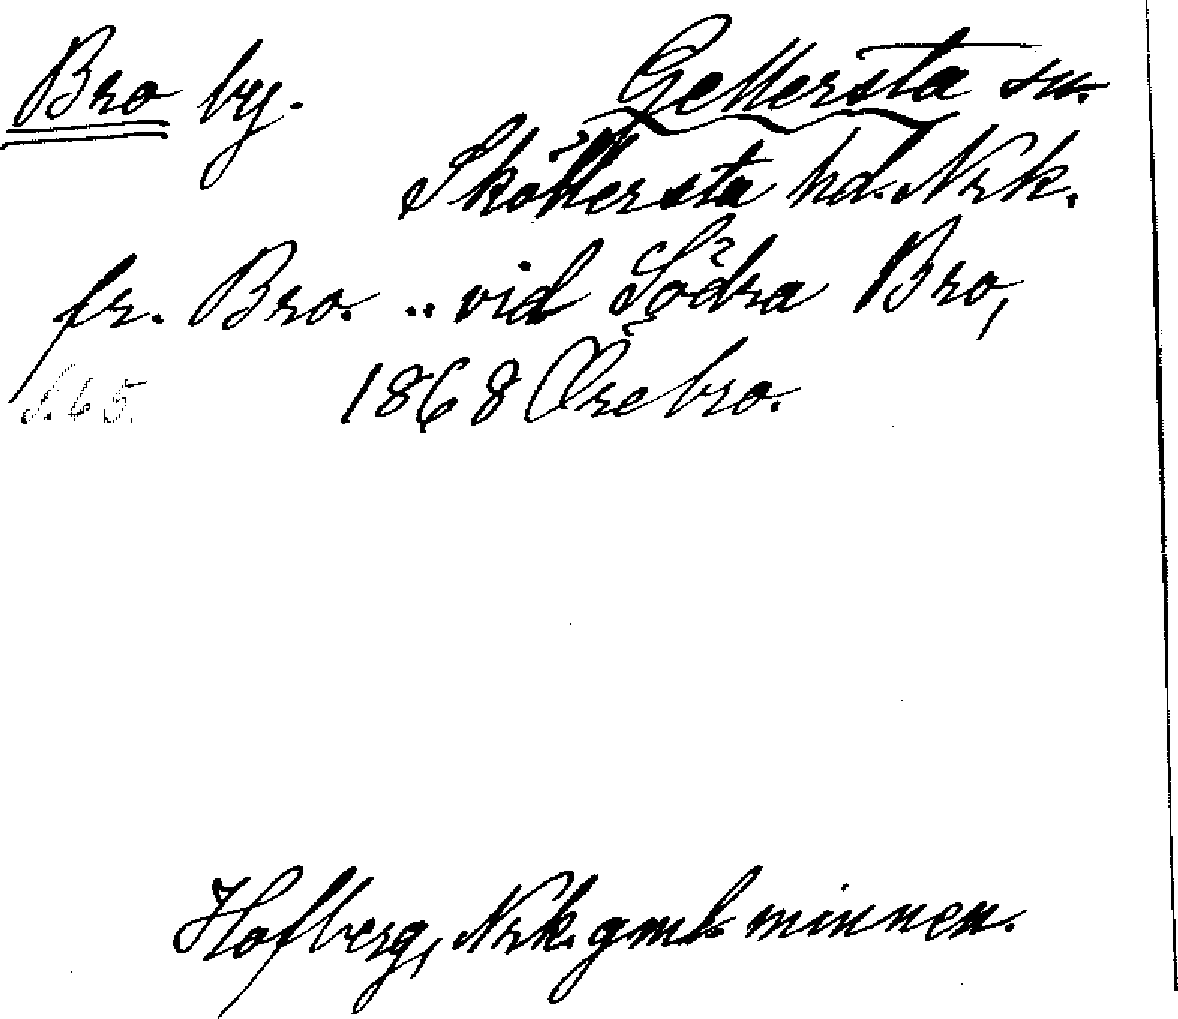 Bro by. Gellersta sn.
Sköllersta hd. Nrk.
fr. Bro. .. vid Södra Bro,
S. 65. 1868 Örebro.
Hofberg, Nrk. gml minnen.